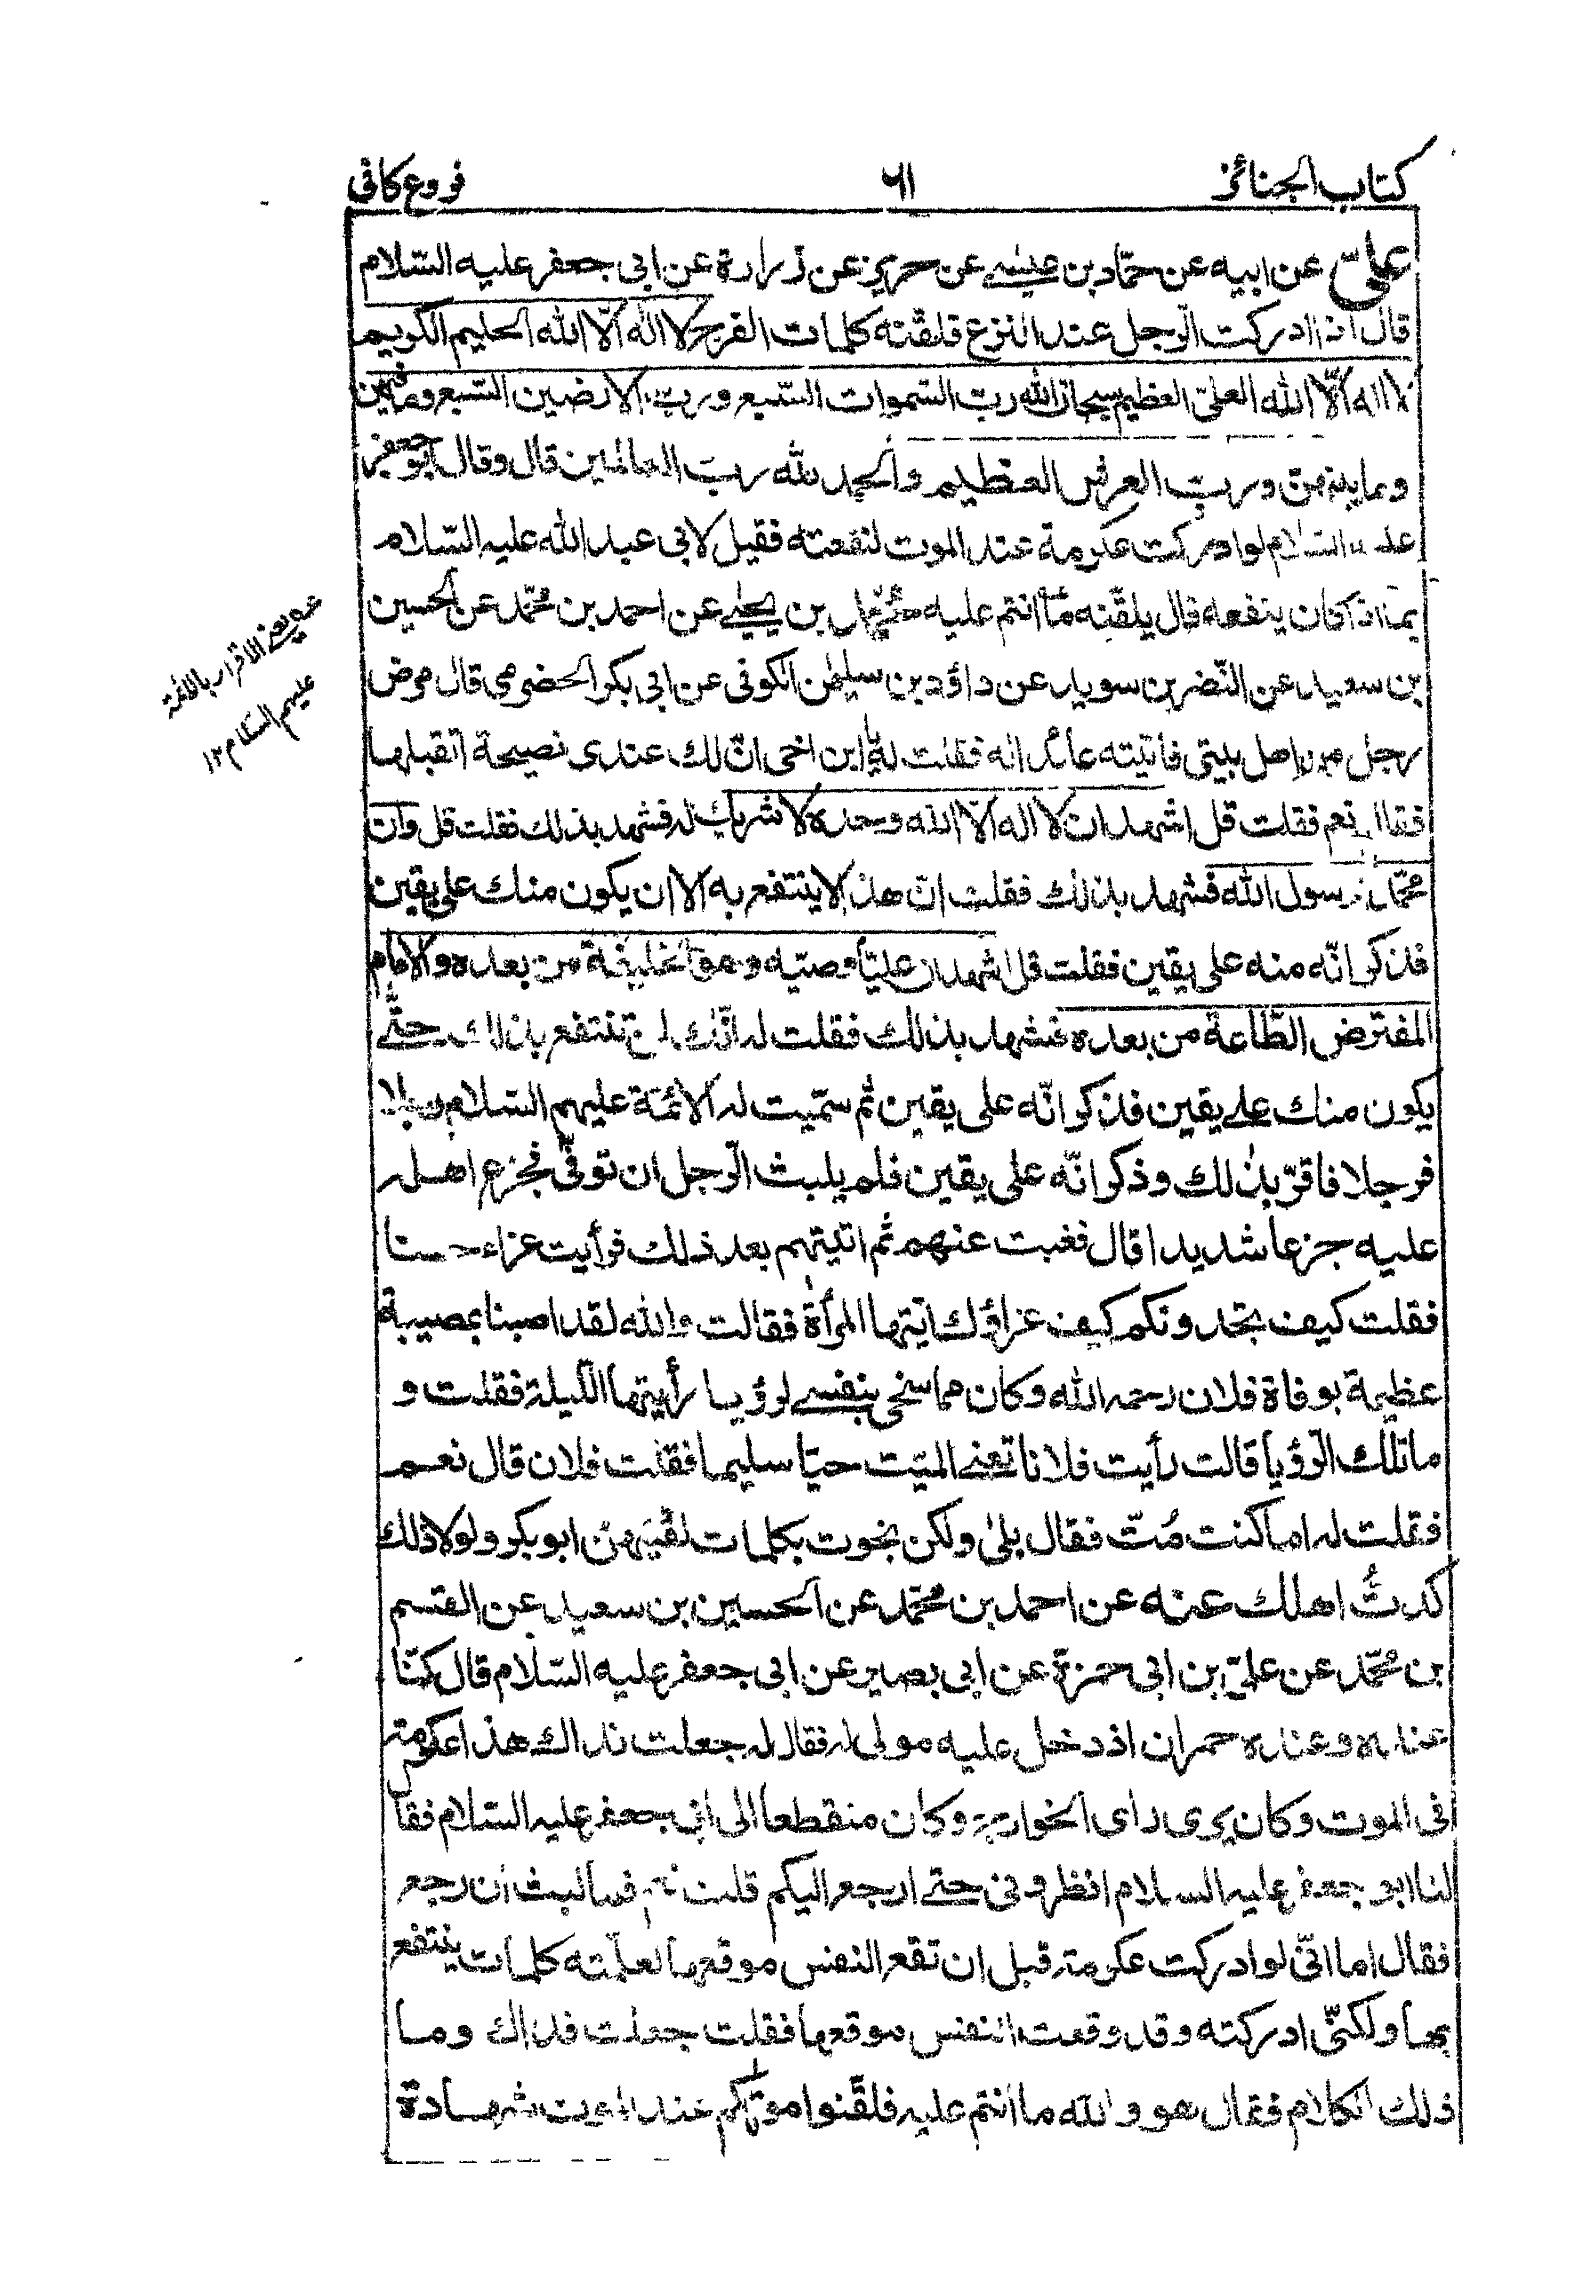 كتاب الجنائز ٦١ فروع كافى
علىّ عن ابيه عن حمّاد بن عيسى عن حريز عن زرارة عن ابى جعفر عليه السّلام
قال اذا ادركت الرّجل عند النزع فلقّنه كلمات الفرج لا اله الّا الله الحليم الكريم
لا اله الّا الله العلىّ العظيم سبحان الله ربّ السّموات السّبع وربّ الارضين السّبع وما فيهنّ
وما بينهنّ وربّ العرش العظيم والحمد لله ربّ العالمين قال وقال ابو جعفر
عليه السّلام لو ادركت عكرمة عند الموت لنفعته فقيل لابى عبد الله عليه السّلام
بما ذا كان ينفعه قال يلقّنه ما انتم عليه محمّد بن يحيى عن احمد بن محمّد عن الحسين
بن سعيد عن النّضر بن سويد عن داؤد بن سليمٰن الكوفى عن ابى بكر الحضرمى قال مرض
رجل من اهل بيتى فاتيته عائدا له فقلت له يا ابن اخى انّ لك عندى نصيحة اتقبلها
فقال نعم فقلت قل اشهد ان لا اله الّا الله وحده لا شريك له فشهد بذلك فقلت قل وانّ
محمّدا رسول الله فشهد بذلك فقلت انّ هذا لا ينتفع به الا ان يكون منك على يقين
فذكر انّه منه على يقين فقلت قل اشهد ان عليّا وصيّه وهو الخليفة من بعده والامام
المفترض الطّاعة من بعده فشهد بذلك فقلت له انّك لن تنتفع بذلك حتّى
يكون منك على يقين فذكر انّه على يقين ثم سمّيت له الائمّة عليهم السّلام رجلا
فرجلا فاقرّ بذلك وذكر انّه على يقين فلم يلبث الرّجل ان توفّى فجزع اهله
عليه جزعا شديدا قال فغبت عنهم ثم اتيتهم بعد ذلك فرأيت عزاء حسنا
فقلت كيف تجدونكم كيف عزاؤك ايّتها المرأة فقالت والله لقد اصبنا بمصيبة
عظيمة بوفاة فلان رحمه الله وكان مما سخى بنفسى لرؤيا رأيتها اللّيلة فقلت و
ما تلك الرّؤيا قالت رأيت فلانا تعنى الميّت حيّا سليما فقلت فلان قال نعم
فقلت له اما كنت مُتّ فقال بلىٰ ولكن نجوت بكلمات لقّنيهنّ ابو بكر ولولا ذلك
كدتُ اهلك عنه عن احمد بن محمّد عن الحسين بن سعيد عن القسم
بن محمّد عن علىّ بن ابى حمزة عن ابى بصير عن ابى جعفر عليه السّلام قال كنّا
عنده وعنده حمران اذ دخل عليه مولى له فقال له جعلت فداك هذا عكرمة
فى الموت وكان يرى راى الخوارج وكان منقطعا الى ابى جعفر عليه السّلام فقا
لنا ابو جعفر عليه السلام انظرونى حتى ارجع اليكم قلت نعم فما لبث ان رجع
فقال اما انّى لو ادركت عكرمة قبل ان تقع النفس موقعها لعلّمته كلمات ينتفع
بها ولكنّى ادركته وقد وقعت النفس موقعها فقلت جعلت فداك وما
ذلك الكلام فقال هو والله ما انتم عليه فلقّنوا موتاكم عند الموت شهادة
هو يعنى الاقرار بالائمّة
عليهم السّلام ١٢